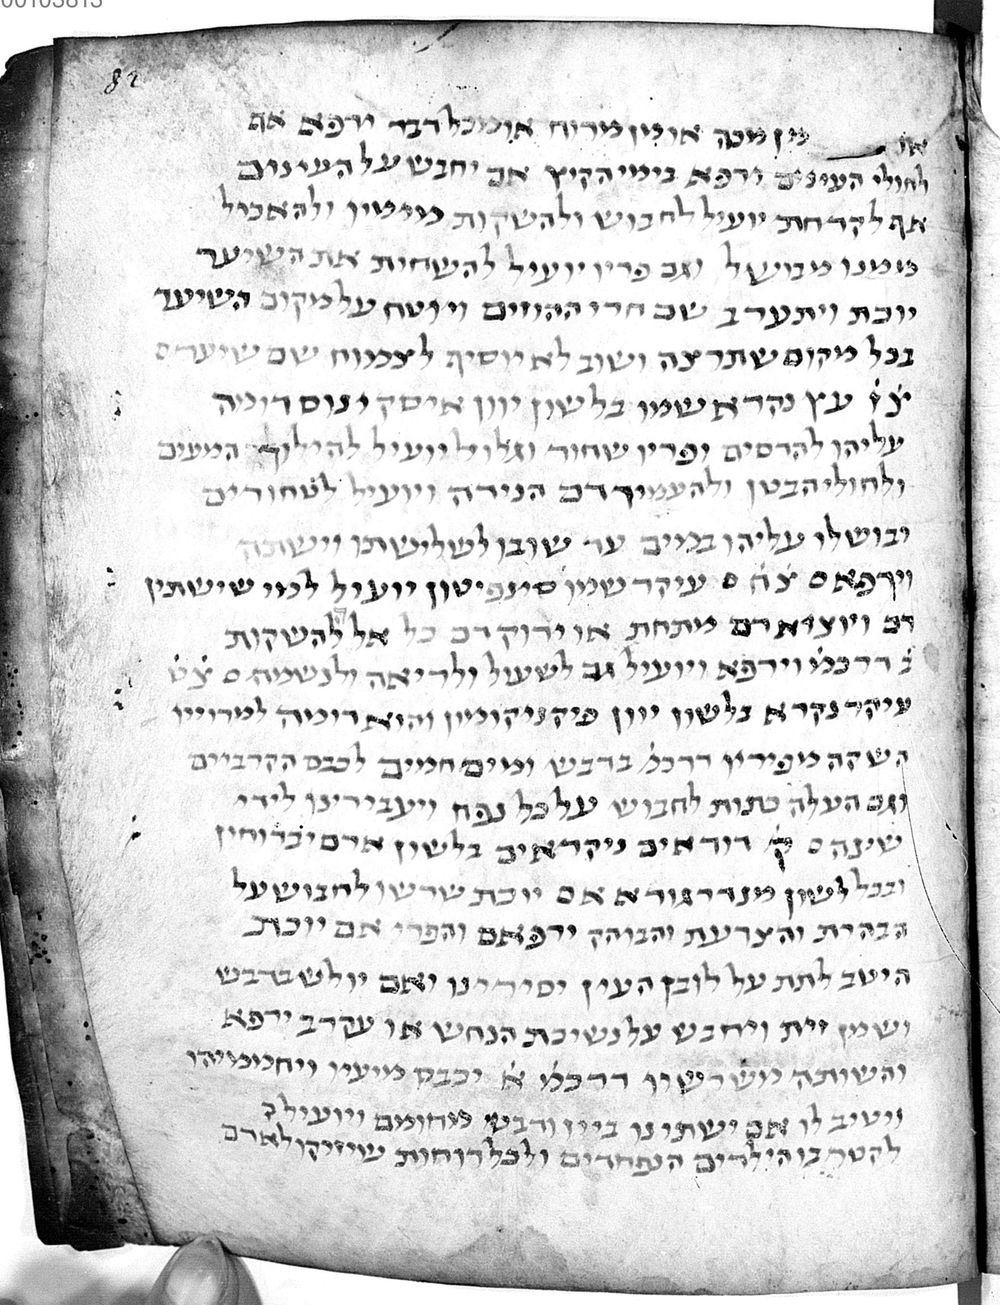 00103813
82
או מן מכה או מן מריח או מכל דבר ירפא אף
לחולי העינים ירפא בימי הקיץ אם יחבש על העינים
אף לקדחת יועיל לחבוש ולהשקות מימיו ולהאכיל
ממנו מבושל וגם פריו יועיל להשחית את השיער
יוכת ויתערב שם חרי ההוזים ויוטח על מקום השיער
בכל מקום שתרצה ושוב לא יוסיף לצמוח שם שיער ס
צז עץ נקרא שמו בלשון יוון איסקינוס דומה
עליהו להדסים ופריו שחור וגלול יועיל להילוך המעים
ולחולי הבטן ולהעמיד דם הנידה ויועיל לטחורים
יבושלו עליהו במים עד שובו לשלישתו וישתה
וירפא ס צח ס עיקר שמו סינפיטון יועיל למי שישתין
דם ויוציא דם מתחת או ירוק דם כל אל להשקות
ב דרכמ וירפא ויועיל גם לשעול ולריאה ולנשמה ס צט
עיקר נקרא בלשון יוון פיקניקומון והוא דומה למרוייו
השקה מפיריו דרכמ בדבש ומים חמים לכבס הקרביים
וגם העלה כתות לחבוש על כל נפח ויעבירינו לידי
שינה ס ק דודאים ניקראים בלשון ארם יברוחין
ובכל לשון מנדרגורא אם יוכת שרשו לחבוש על
הבהרת והצרעת והבוהק ירפאם והפרי אם יוכת
היטב לתת על לובן העין יסירינו ואם יולש בדבש
ושמן זית ויחבש על נשיכת הנחש או עקרב ירפא
והשותה משרשיו דרכמ א יכבס מיעיו ויחממיהו
וייטיב לו אם ישתינו ביין ודבש מחומם ויועיל ל
להקטר בו הילדים הנפחדים ולכל רוחות שיזיקו לאדם